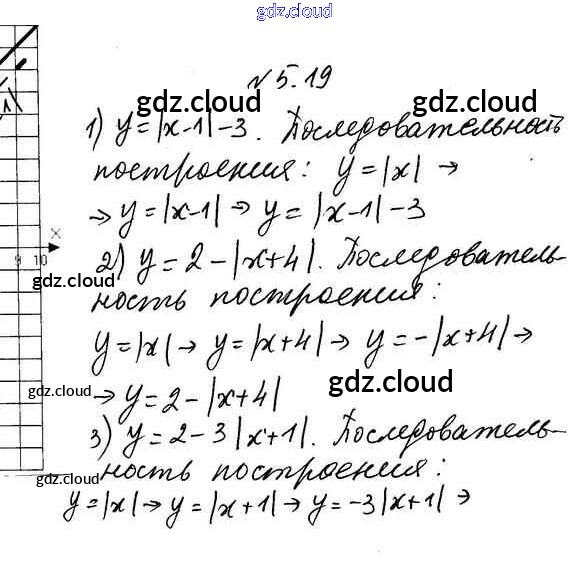 gdz.cloud
№5.19
gdz.cloud gdz.cloud
1) y=|x-1|-3. Последовательность
построения: y=|x| →
→ y=|x-1| → y=|x-1|-3
x
9 10
2) y=2-|x+4|. Последователь-
gdz.cloud
ность построения:
y=|x| → y=|x+4| → y=-|x+4| →
gdz.cloud gdz.cloud
→ y=2-|x+4|
3) y=2-3|x+1|. Последователь-
ность построения:
gdz.cloud gdz.cloud
y=|x| → y=|x+1| → y=-3|x+1| →